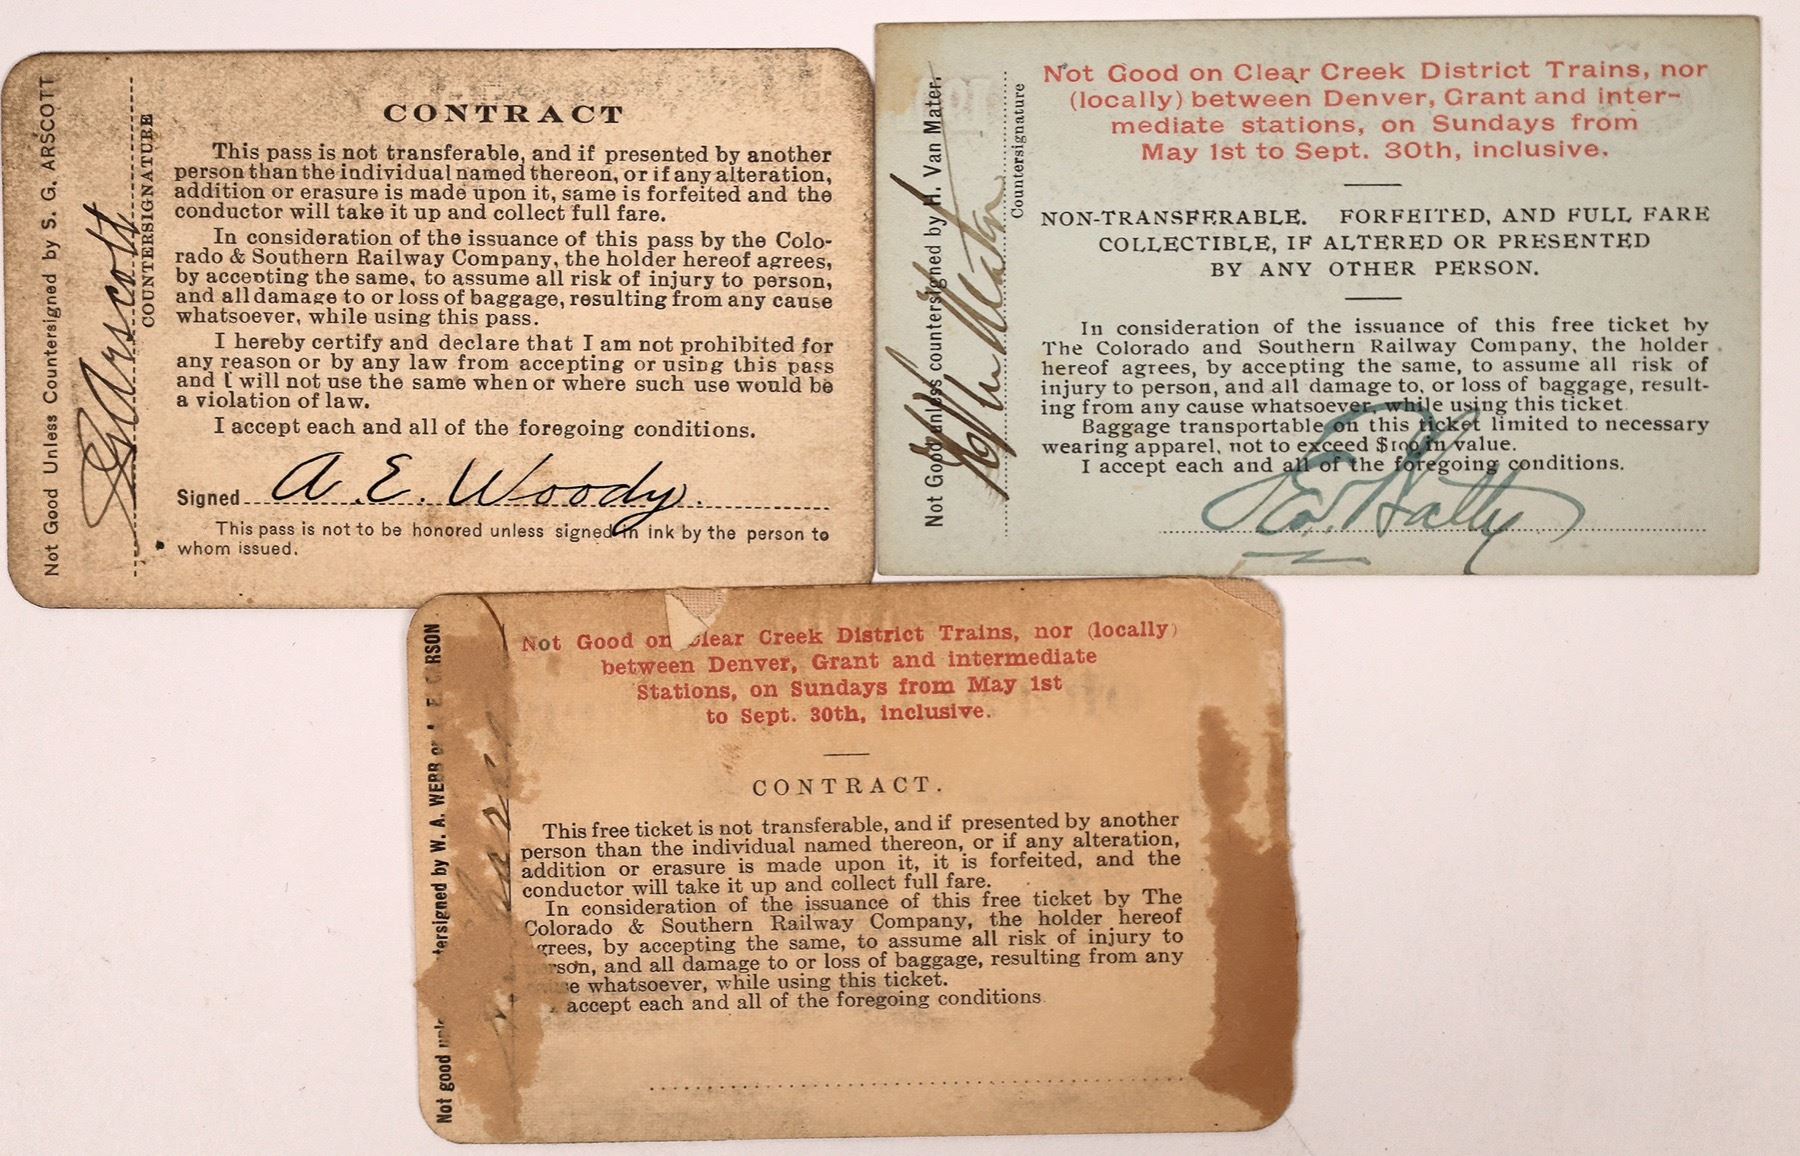 Not Good Unless Countersigned by S. G. ARSCOTT
SGArscott
COUNTERSIGNATURE
CONTRACT
This pass is not transferable, and if presented by another
person than the individual named thereon, or if any alteration,
addition or erasure is made upon it, same is forfeited and the
conductor will take it up and collect full fare.
In consideration of the issuance of this pass by the Colo-
rado & Southern Railway Company, the holder hereof agrees,
by accepting the same, to assume all risk of injury to person,
and all damage to or loss of baggage, resulting from any cause
whatsoever, while using this pass.
I hereby certify and declare that I am not prohibited for
any reason or by any law from accepting or using this pass
and I will not use the same when or where such use would be
a violation of law.
I accept each and all of the foregoing conditions.
Signed A. E. Woody.
This pass is not to be honored unless signed in ink by the person to
whom issued.
Not Good unless countersigned by H. Van Mater.
H Van Mater
Countersignature
Not Good on Clear Creek District Trains, nor
(locally) between Denver, Grant and inter-
mediate stations, on Sundays from
May 1st to Sept. 30th, inclusive.
NON-TRANSFERABLE. FORFEITED, AND FULL FARE
COLLECTIBLE, IF ALTERED OR PRESENTED
BY ANY OTHER PERSON.
In consideration of the issuance of this free ticket by
The Colorado and Southern Railway Company, the holder
hereof agrees, by accepting the same, to assume all risk of
injury to person, and all damage to, or loss of baggage, result-
ing from any cause whatsoever, while using this ticket.
Baggage transportable on this ticket limited to necessary
wearing apparel, not to exceed $100 in value.
I accept each and all of the foregoing conditions.
Not good countersigned by W. A. WEBB or
Not Good on Clear Creek District Trains, nor (locally)
between Denver, Grant and intermediate
Stations, on Sundays from May 1st
to Sept. 30th, inclusive.
CONTRACT.
This free ticket is not transferable, and if presented by another
person than the individual named thereon, or if any alteration,
addition or erasure is made upon it, it is forfeited, and the
conductor will take it up and collect full fare.
In consideration of the issuance of this free ticket by The
Colorado & Southern Railway Company, the holder hereof
agrees, by accepting the same, to assume all risk of injury to
person, and all damage to or loss of baggage, resulting from any
cause whatsoever, while using this ticket.
accept each and all of the foregoing conditions.